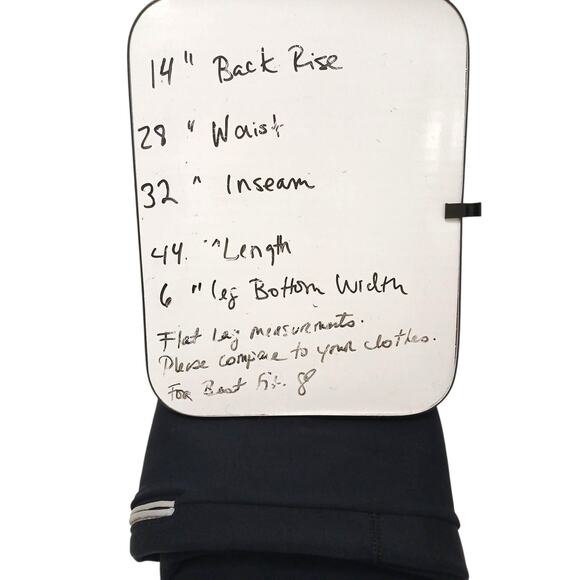 14" Back Rise
28" Waist
32" Inseam
44." Length
6" leg Bottom Width
Flat leg measurements.
Please compare to your clothes.
For Best Fit.